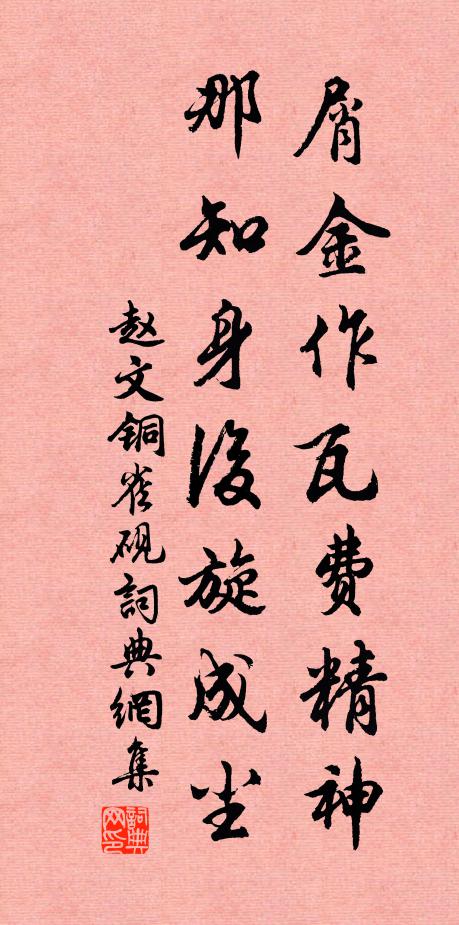 屑金作瓦費精神
那知身後旋成尘
赵文铜雀砚詞典網集
詞典网印